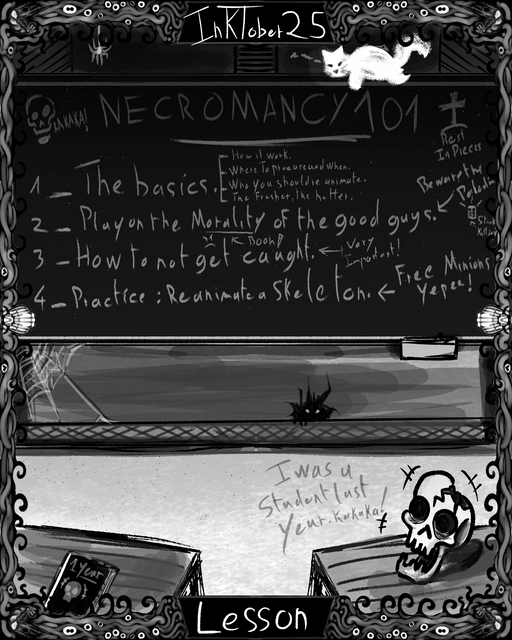 InKTober25
KAKAKA!
NECROMANCY 101
Rest
In Pieces
1_ The basics.
How it work.
Where To procure and when.
Who You should reanimate.
The Fresher, the hotter.
2_ Play on the Morality of the good guys.
Booh!
Beware the
Paladin
3_ How to not get caught.
Very
Important!
4_ Practice : Reanimate a Skeleton.
Free Minions
Yepee!
I was a
Student last
Year. Kakaka!
1 Year
Lesson